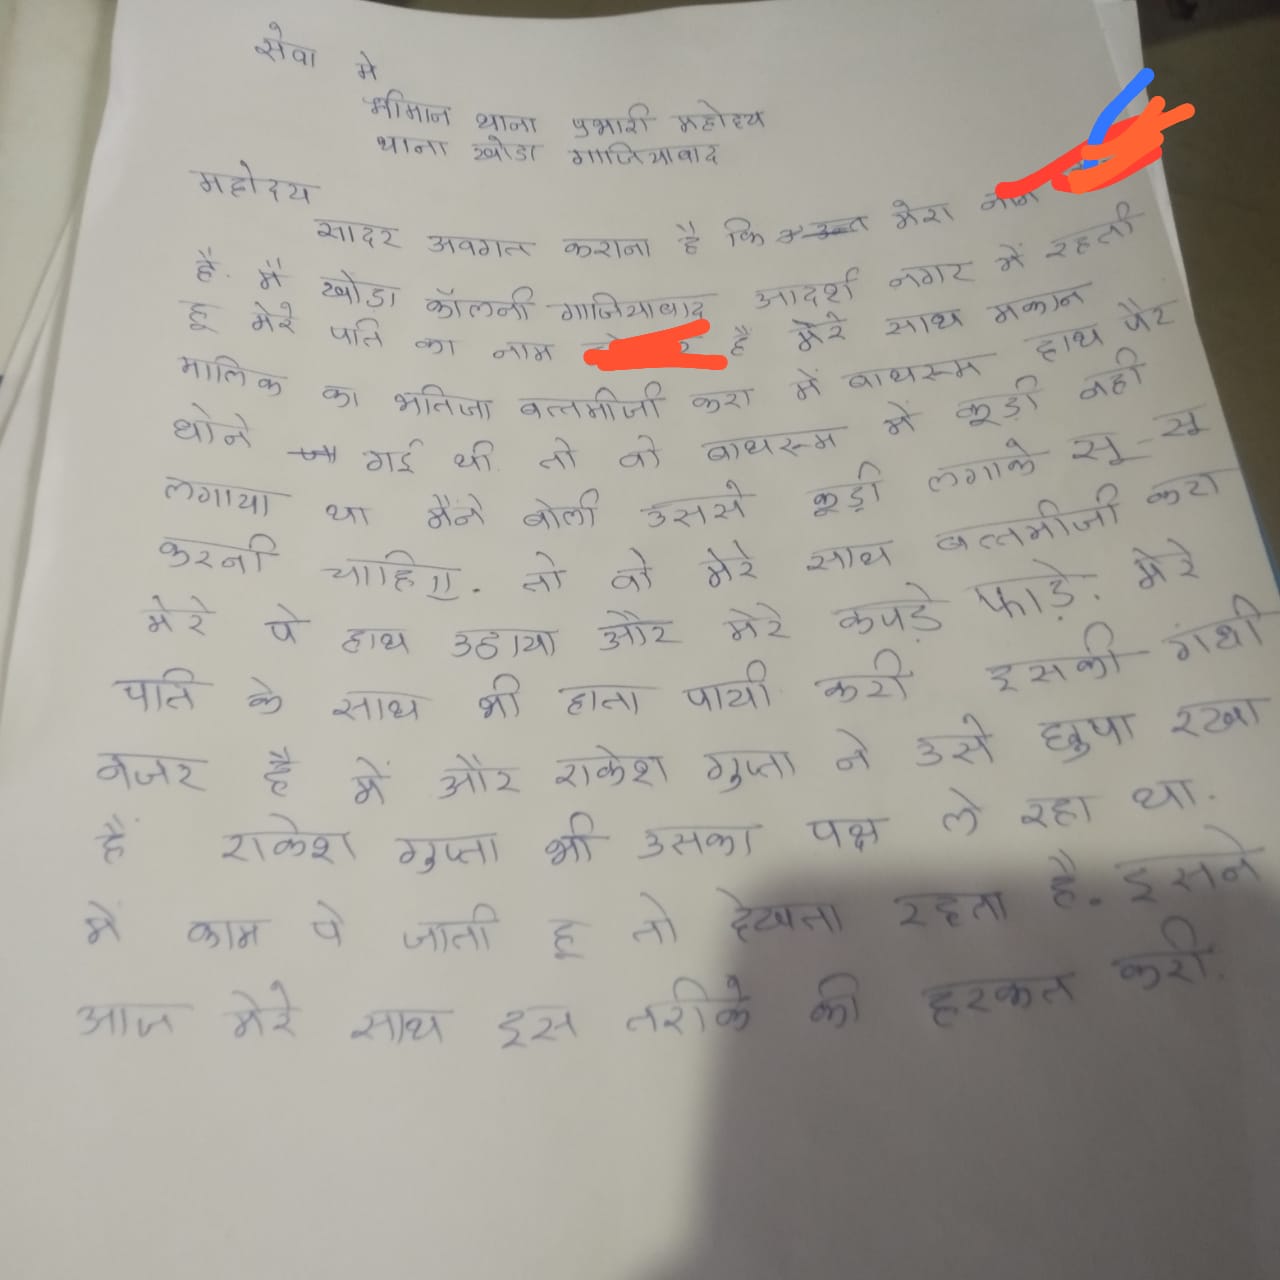 सेवा मे
श्रीमान थाना प्रभारी महोदय
थाना खोडा गाजियाबाद
महोदय
सादर अवगत कराना है कि मेरा नाम
है. मैं खोड़ा कॉलनी गाजियाबाद आदर्श नगर में रहती
हू मेरे पति का नाम है मेरे साथ मकान
मालिक का भतिजा बत्तमीजी करा में बाथरूम हाथ पैर
धोने गई थी तो वो बाथरूम में कूड़ी नही
लगाया था मैंने बोली उससे कूड़ी लगाके सू-सू
करनी चाहिए. तो वो मेरे साथ बत्तमीजी करा
मेरे पे हाथ उठाया और मेरे कपड़े फाड़े. मेरे
पति के साथ भी हाता पायी करी इसकी गंधी
नजर है में और राकेश गुप्ता ने उसे छुपा रखा
है राकेश गुप्ता भी उसका पक्ष ले रहा था.
में काम पे जाती हू तो देखता रहता है. इसने
आज मेरे साथ इस तरीके की हरकत करी.